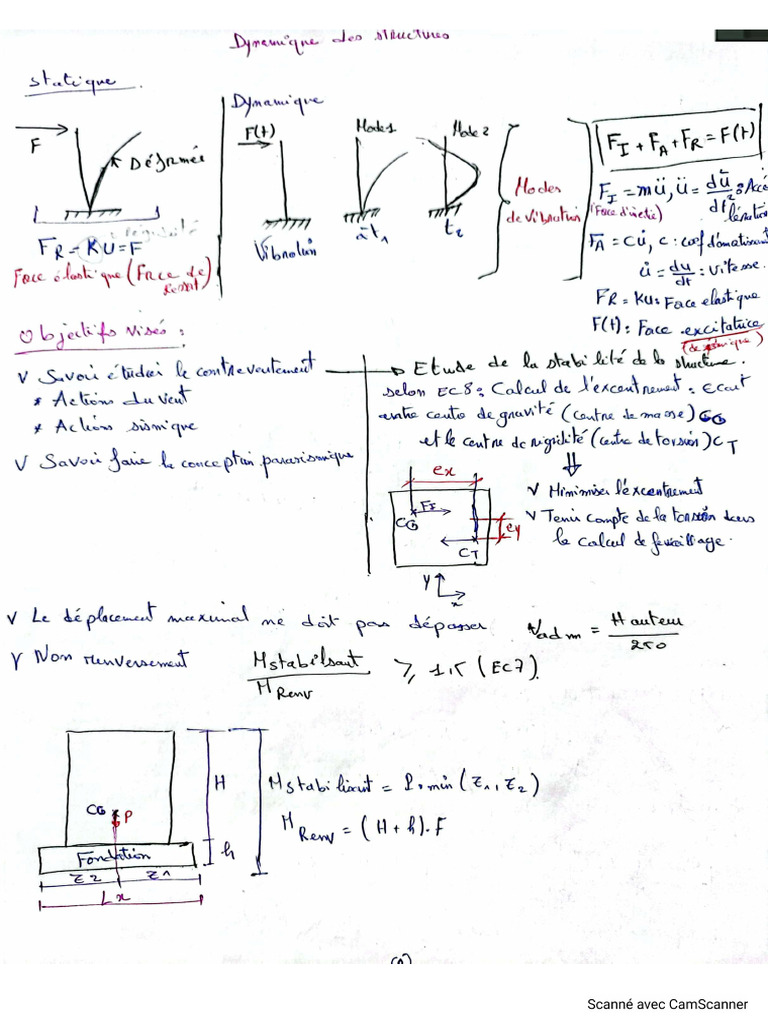 Dynamique des structures
Statique
Dynamique
F
Déformée
F(t)
Mode 1
Mode 2
Vibration
à t1
t2
Modes
de vibration
FI + FA + FR = F(t)
FI = mü, ü = dü/dt² : Accé
lération
(Force d'inertie)
FA = Cu̇, c : coef d'amortissmt
u̇ = du/dt : vitesse.
FR = KU : Force elastique
F(t) : Force excitatrice
FR = KU = F
Force élastique (Force de
(sismique)
Objectifs visés :
v Savoir étudier le contreventement
* Actions du vent
* Actions sismique
v Savoir faire la conception parasismique
→ Etude de la stabilité de la structure.
selon EC8 : Calcul de l'excentrement : Ecart
entre centre de gravité (centre de masse) CG
et le centre de rigidité (centre de torsion) CT
⇓
v Minimiser l'excentrement
v Tenir compte de la torsion dans
le calcul de ferraillage.
ex
FI
CG
ey
CT
y
x
v Le déplacement maximal ne doit pas dépasser Vadm = Hauteur/250
v Non renversement Mstabilisant/MRenv ≥ 1.5 (EC7).
H
CG
P
Fondation
h
Z2
Z1
Lx
Mstabilisant = P. min (Z1, Z2)
MRenv = (H + h). F
Scanné avec CamScanner